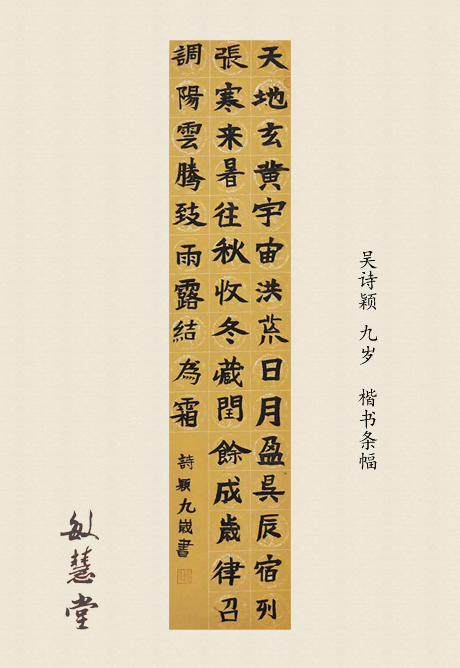 吴诗颖 九岁 楷书条幅
天地玄黄宇宙洪荒日月盈昃辰宿列
張寒来暑往秋收冬藏閏餘成歲律召
調陽雲騰致雨露結為霜
詩穎九歲書
敏慧堂